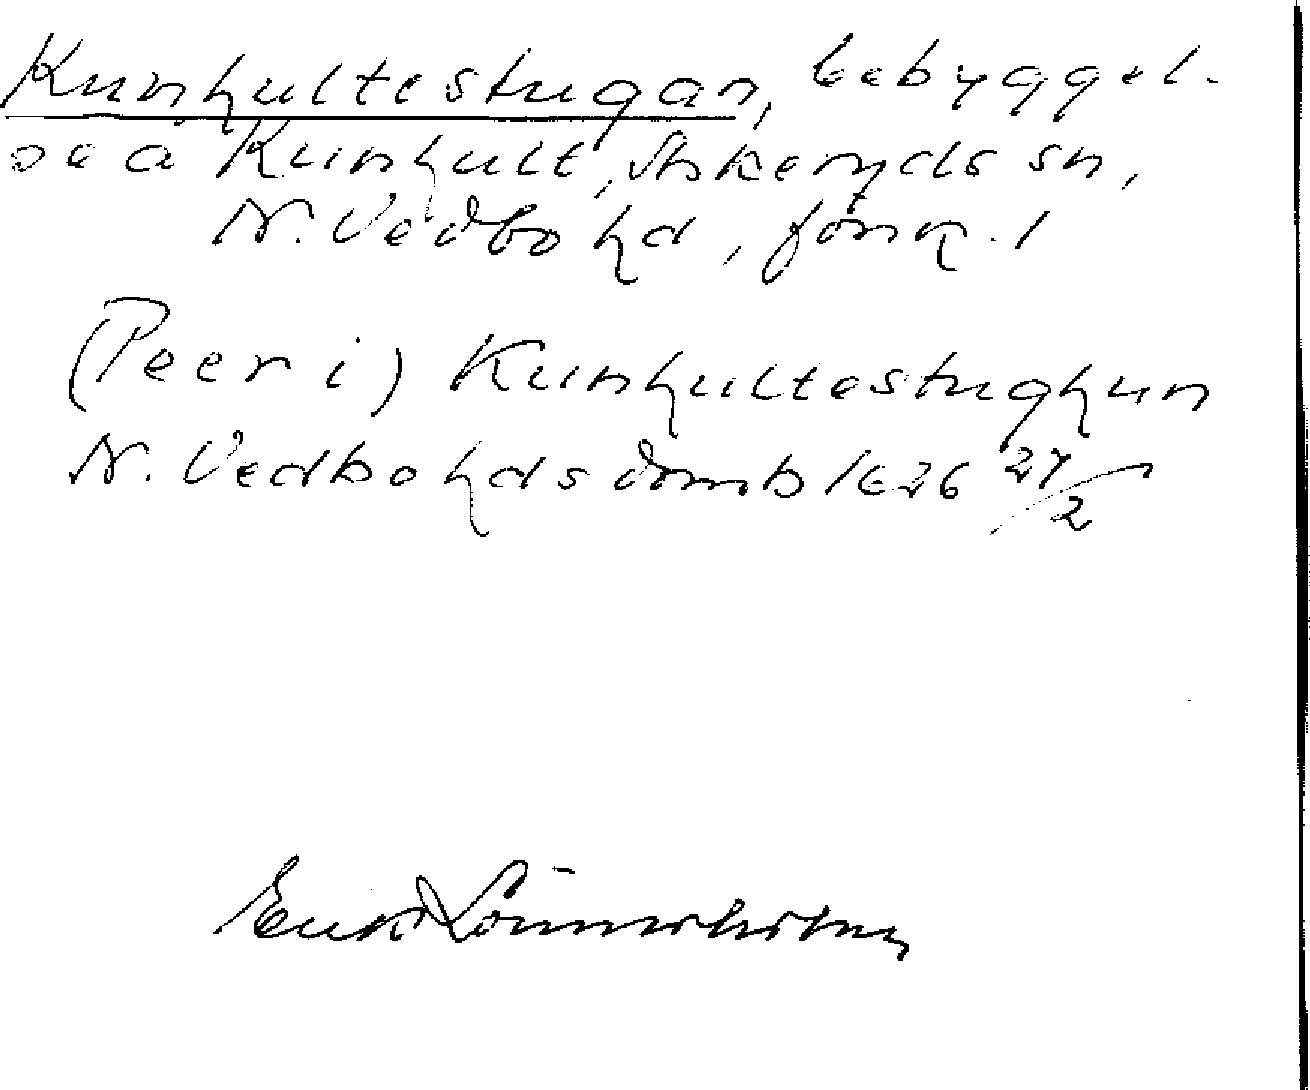 Kunhultestugan, bebyggel-
se å Kunhult, Askeryds sn,
N. Vedbo hd, Jönk. l
(Peer i) Kunhultestughun
N. Vedbo hds domb 1626 27/2
Erik Lönnerholm